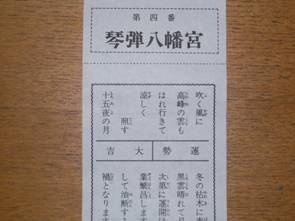 第四番
琴弾八幡宮
吹く風に
高峰の雲も
はれ行きて
涼しく照す
十五夜の月
運勢大吉
冬の枯木に
黒雲晴れて月
次第に運開け
業繁昌します
して治断す
補となります